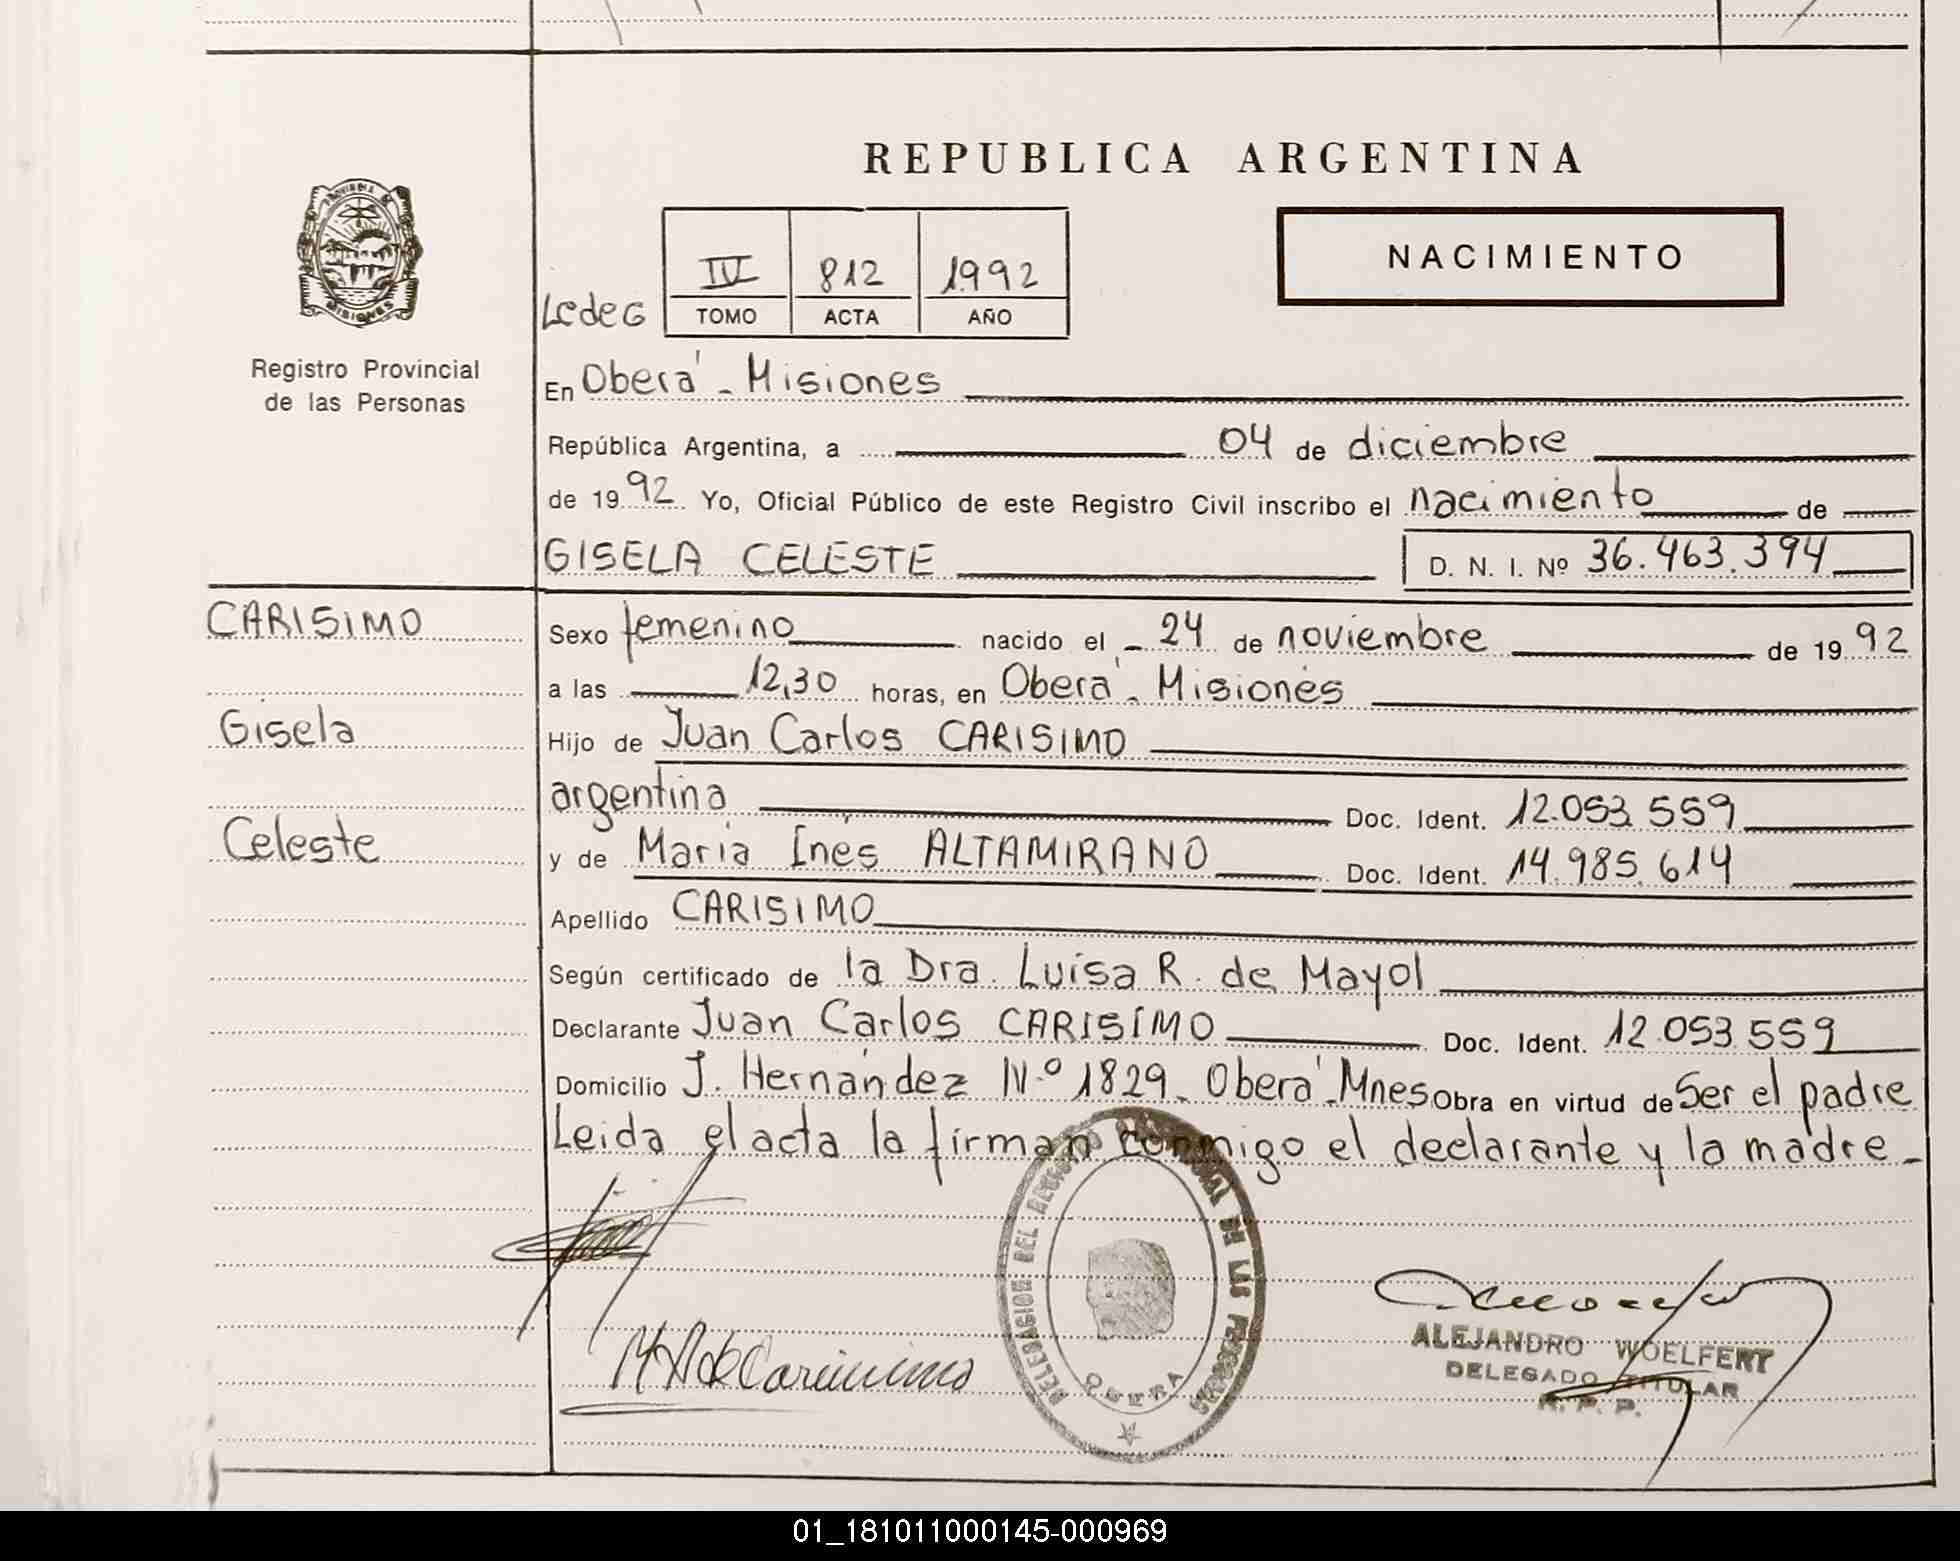 REPUBLICA ARGENTINA
PROVINCIA DE
MISIONES
Registro Provincial
de las Personas
NACIMIENTO
IV 812 1992
TOMO ACTA AÑO
En Oberá - Misiones
República Argentina, a 04 de diciembre
de 1992 Yo, Oficial Público de este Registro Civil inscribo el nacimiento de
GISELA CELESTE D. N. I. Nº 36.463.394
CARISIMO
Gisela
Celeste
Sexo femenino nacido el - 24 de noviembre de 1992
a las 12,30 horas, en Oberá - Misiones
Hijo de Juan Carlos CARISIMO
argentina Doc. Ident. 12.053.559
y de Maria Inés ALTAMIRANO Doc. Ident. 14.985.614
Apellido CARISIMO
Según certificado de la Dra. Luisa R. de Mayol
Declarante Juan Carlos CARISIMO Doc. Ident. 12.053.559
Domicilio J. Hernández N.º 1829 - Oberá - Mnes Obra en virtud de Ser el padre
Leida el acta la firman conmigo el declarante y la madre -
DELEGACION DEL REGISTRO PROVINCIAL DE LAS PERSONAS
OBERA
ALEJANDRO WOELFERT
DELEGADO TITULAR
R. P. P.
01_181011000145-000969